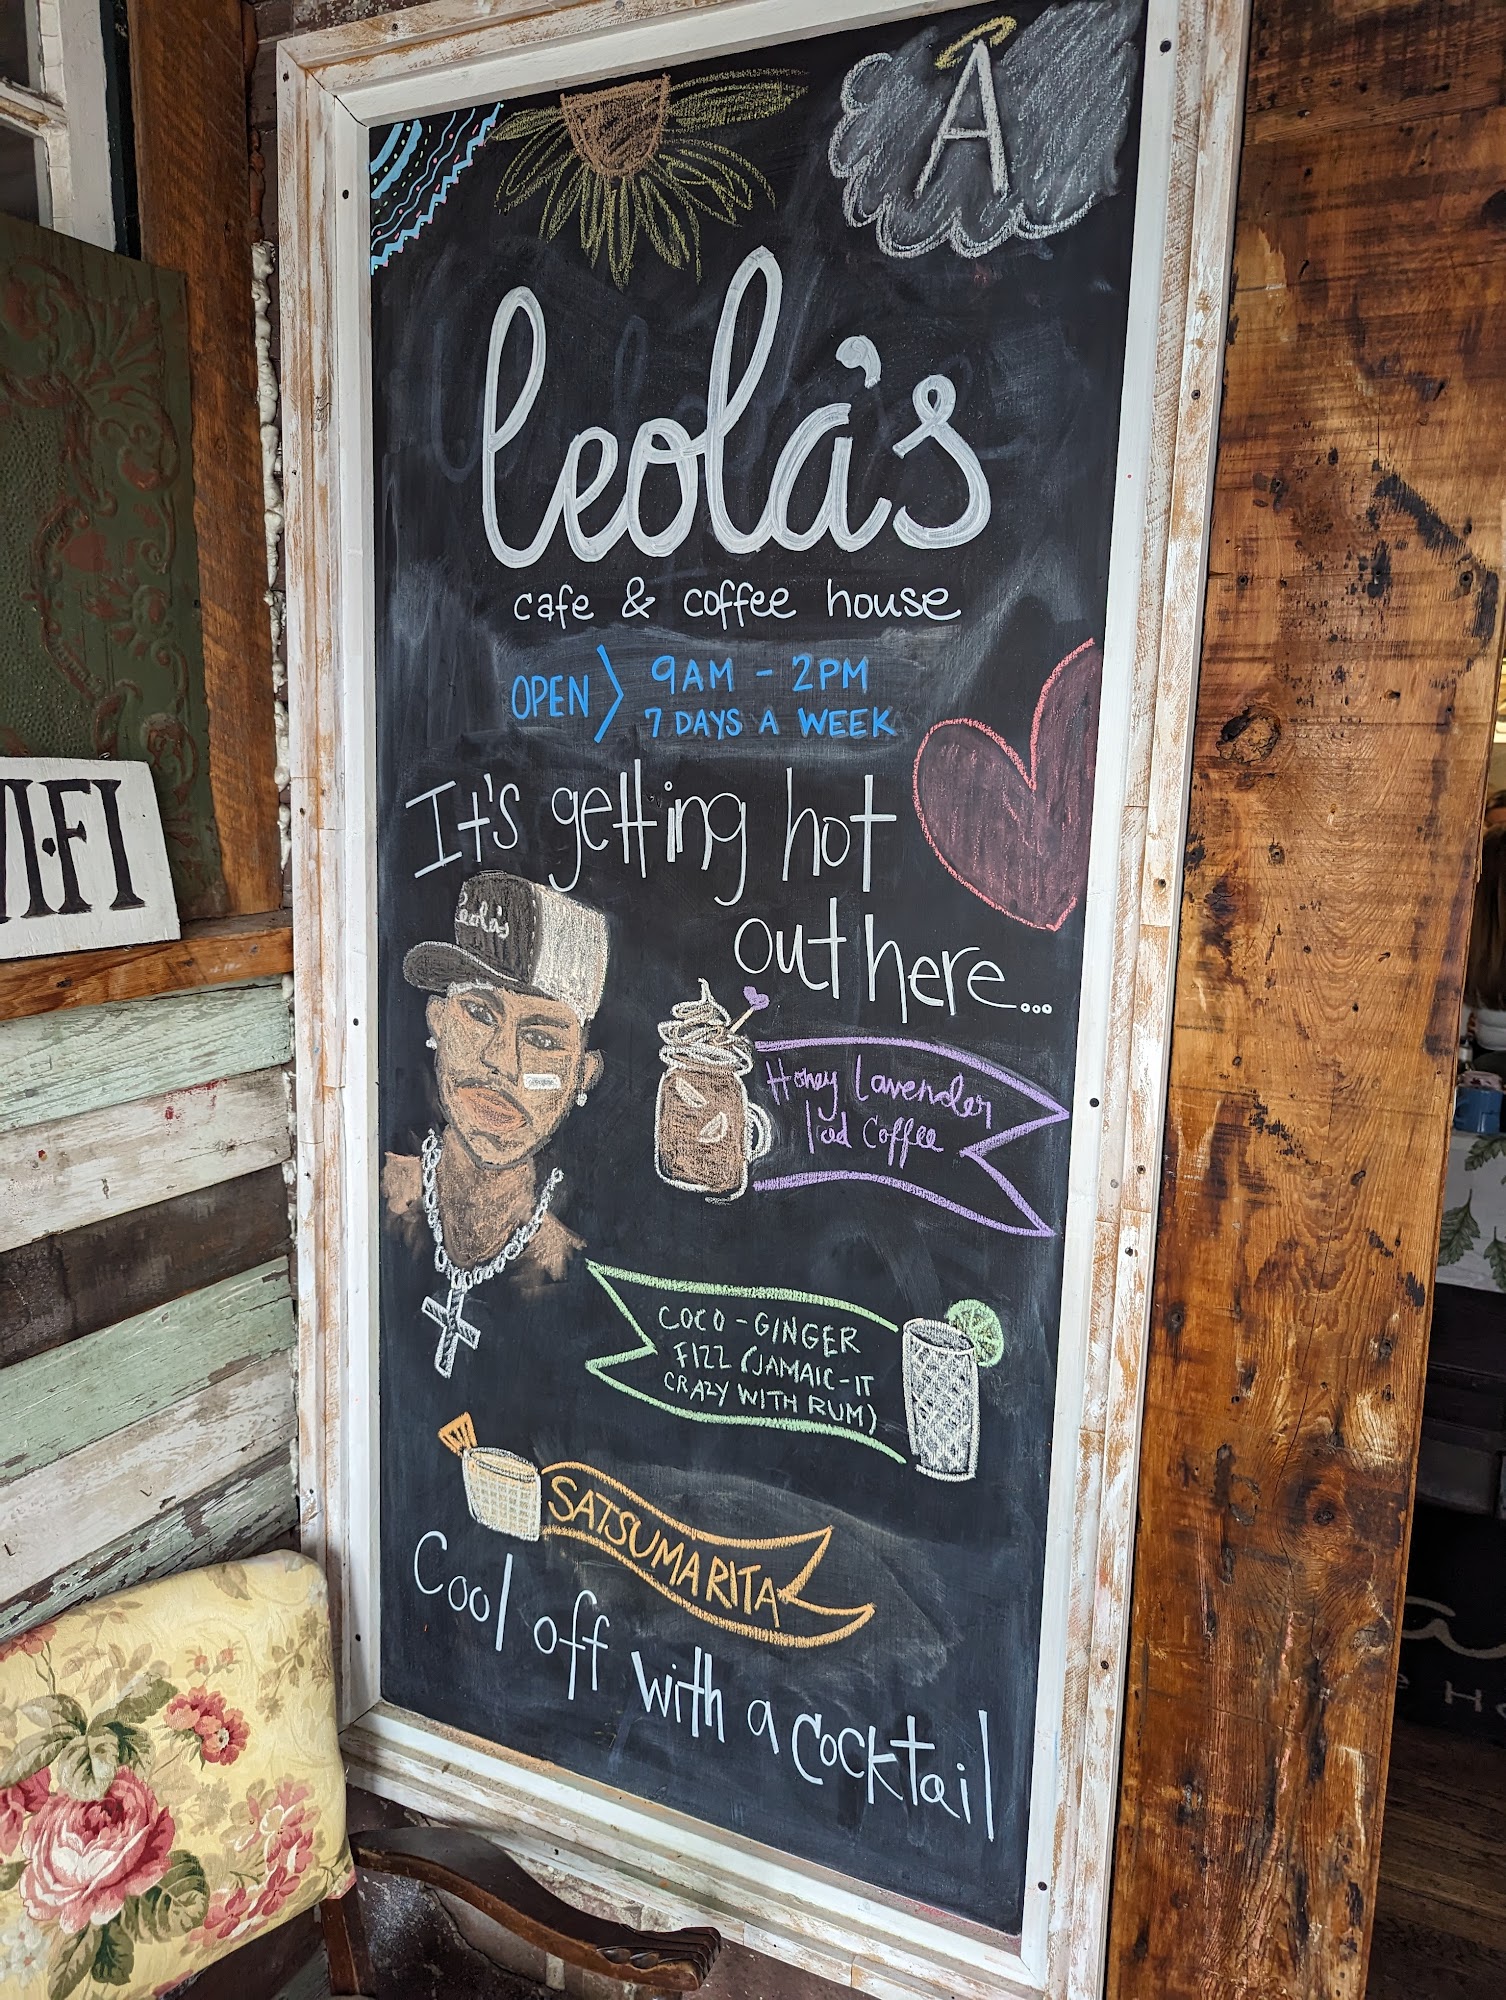 A
leola's
cafe & coffee house
OPEN > 9AM - 2PM
7 DAYS A WEEK
It's getting hot
out here...
leola's
Honey Lavender
Iced Coffee
COCO-GINGER
FIZZ (JAMAIC-IT
CRAZY WITH RUM)
SATSUMARITA
Cool off with a cocktail
I-FI